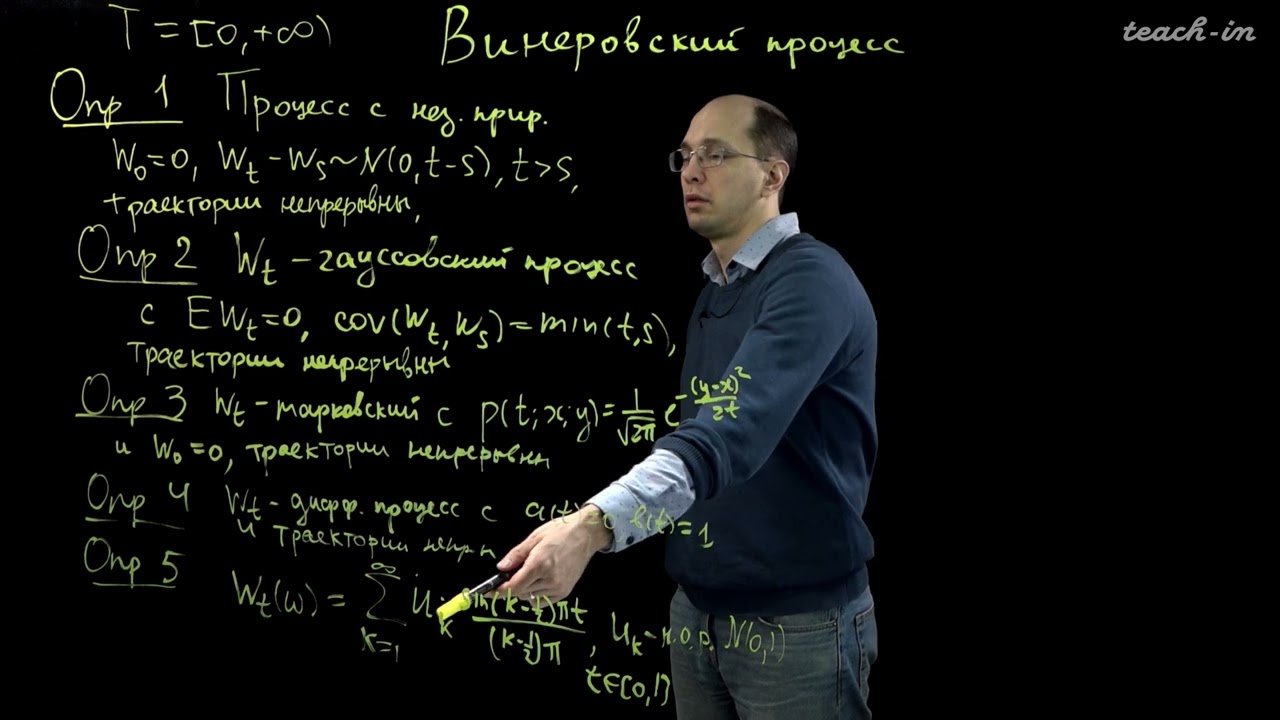 T = [0, +∞)
Винеровский процесс
teach-in
Опр 1 Процесс с нез. прир.
W₀=0, W_t − W_s ~ N(0, t-s), t>s,
траектории непрерывны,
Опр 2 W_t − гауссовский процесс
с EW_t=0, cov(W_t, W_s) = min(t,s),
траектории непрерывны
Опр 3 W_t − марковский с p(t; x; y) = 1/√2π e^{-(y-x)²/2t}
и W₀=0, траектории непрерывны
Опр 4 W_t − дифф. процесс с a(t)=0 b(t)=1
и траектории непр-н
Опр 5
W_t(ω) = ∑_{k=1}^{∞} U_k sin(k-½)πt/(k-½)π, U_k − н.о.р. N(0,1)
t∈[0,1]